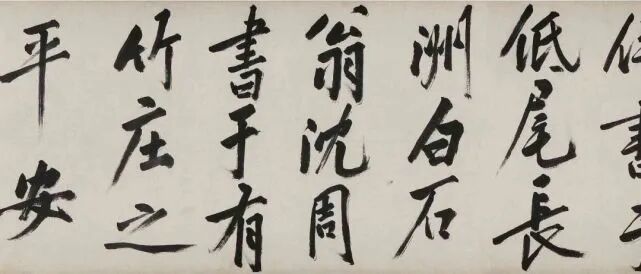 書
低尾長
洲白石
翁沈周
書于有
竹庄之
平安